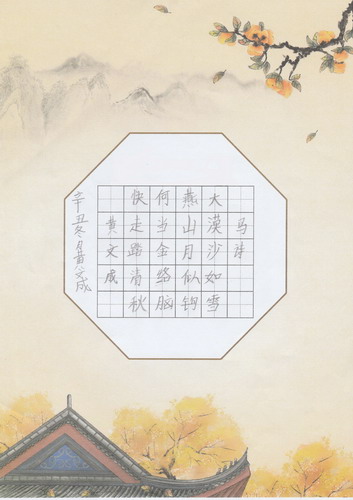 马诗
大漠沙如雪
燕山月似钩
何当金络脑
快走踏清秋
黄文成
辛丑冬月黄文成